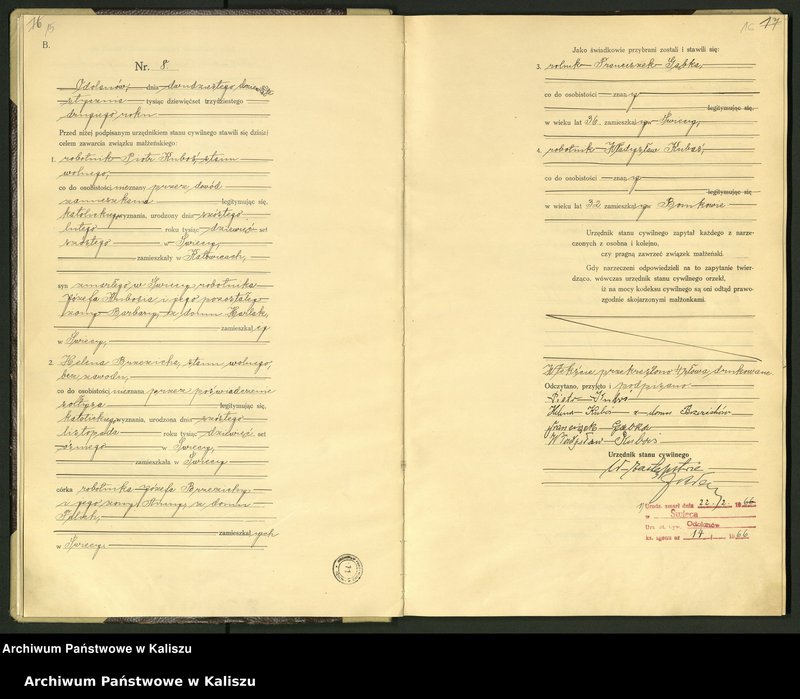 16
15
B.
Nr. 8
Odolanów, dnia dwudziestego
stycznia tysiąc dziewięćset trzydziestego
drugiego roku
Przed niżej podpisanym urzędnikiem stanu cywilnego stawili się dzisiaj
celem zawarcia związku małżeńskiego:
1. robotnik Piotr Kuboś, stanu
wolnego,
co do osobistości nieznany przez dowód
legitymujący się,
katolickiego wyznania, urodzony dnia szóstego
lutego roku tysiąc dziewięć set
szóstego w Świecy,
zamieszkały w Katowicach,
syn zmarłego w Świecy robotnika
Józefa Kubosia i jego pozostałej
żony Barbary, z domu
zamieszkałej
w Świecy,
2. Helena Brzezicha, stanu wolnego,
bez zawodu,
co do osobistości nieznana przez poświadczenie
sołtysa legitymująca się,
katolickiego wyznania, urodzona dnia szóstego
listopada roku tysiąc dziewięć set
ósmego w Świecy,
zamieszkała w Świecy
córka robotnika Józefa Brzezichy
i jego żony Anny, z domu
zamieszkałych
w Świecy.
16 17
Jako świadkowie przybrani zostali i stawili się:
3. rolnik Franciszek Gąbka,
co do osobistości znany
legitymując się,
w wieku lat 36 zamieszkały w Świecy,
4. robotnik Władysław Kuboś,
co do osobistości znany
legitymując się
w wieku lat 32 zamieszkały w
Urzędnik stanu cywilnego zapytał każdego z narze-
czonych z osobna i kolejno,
czy pragną zawrzeć związek małżeński.
Gdy narzeczeni odpowiedzieli na to zapytanie twier-
dząco, wówczas urzędnik stanu cywilnego orzekł,
iż na mocy kodeksu cywilnego są oni odtąd prawo-
zgodnie skojarzonymi małżonkami.
W tekście przekreślono 4 słowa drukowane.
Odczytano, przyjęto i podpisano
Piotr Kuboś
Helena Kuboś z domu Brzezichów
Franciszek Gąbka
Władysław Kuboś
Urzędnik stanu cywilnego
W zastępstwie
1) Urodz. zmarł dnia 22/2 1966
w Świeca
Urz. st. cyw. Odolanów
ks. zgonu nr 14 / 1966
Archiwum Państwowe w Kaliszu
Archiwum Państwowe w Kaliszu